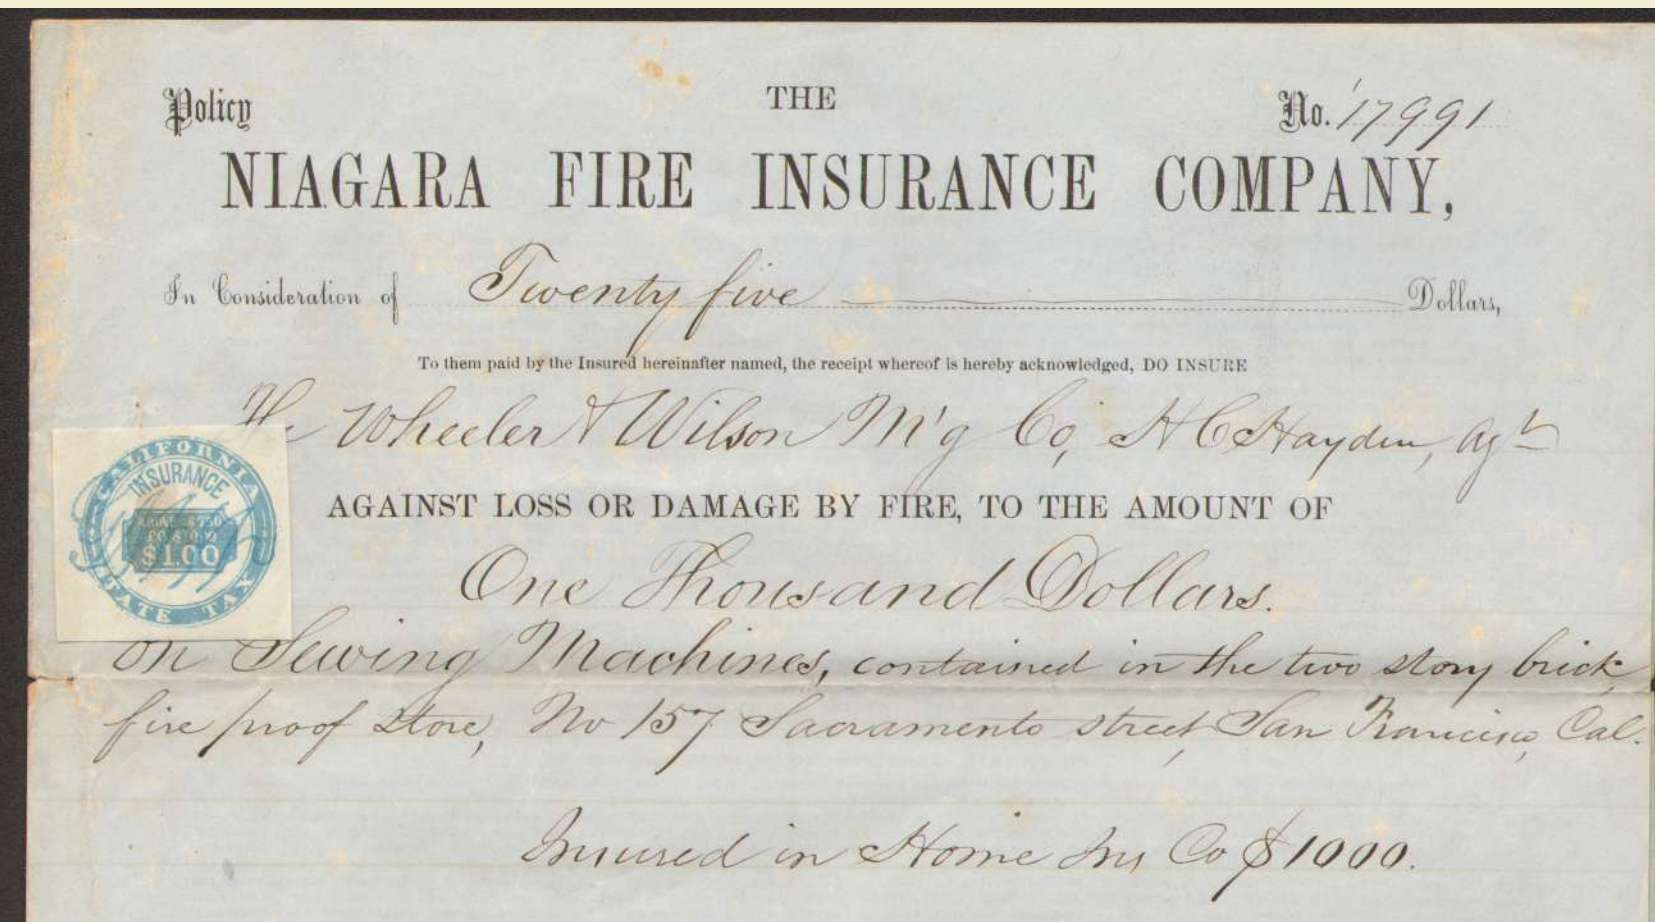 Policy THE No. 17991
NIAGARA FIRE INSURANCE COMPANY,
In Consideration of Twenty five Dollars,
To them paid by the Insured hereinafter named, the receipt whereof is hereby acknowledged, DO INSURE
The Wheeler & Wilson M'g Co, H C Hayden, Agt
CALIFORNIA
INSURANCE
$1.00
STATE TAX
AGAINST LOSS OR DAMAGE BY FIRE, TO THE AMOUNT OF
One Thousand Dollars.
on Sewing Machines, contained in the two story brick
fire proof Store, No 157 Sacramento street, San Francisco, Cal.
Insured in Home Ins Co $1000.